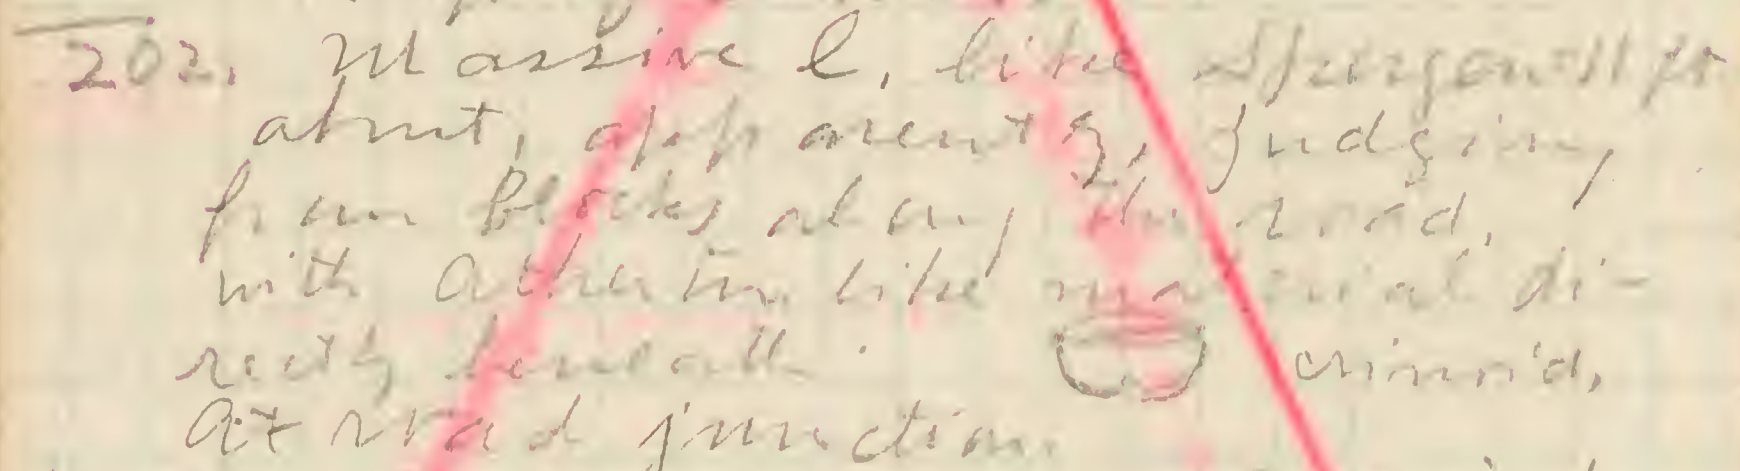 202. Massive l, like Spurgeon Hill
about, apparently, judging,
from blocks along the road,
with Atherton like material di-
rectly beneath. crinoid,
At road junction.